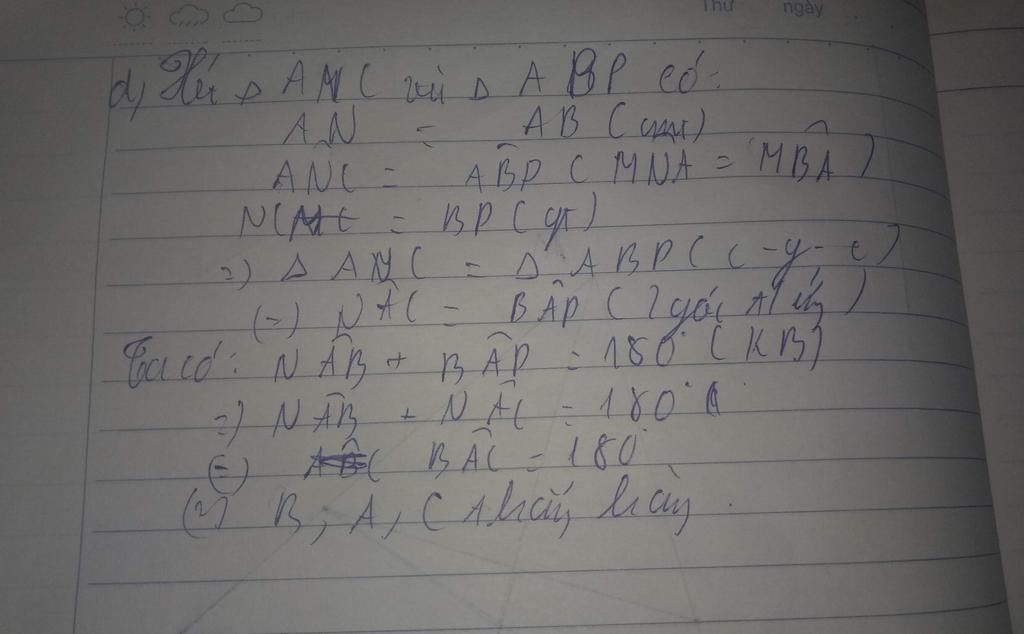 Thứ ngày
d, Xét Δ ANC và Δ ABP có:
AN = AB (cmt)
AN̂C = AB̂P ( MNA = MB̂A )
NC = BP (gt)
=) Δ ANC = Δ ABP ( c - g - c )
(=) NÂC = BÂP ( 2 góc t/ứng )
Ta có: NÂB + BÂP = 180° ( KB )
=) NÂB + NÂC = 180°
(=) BÂC = 180°
(=) B, A, C thẳng hàng.